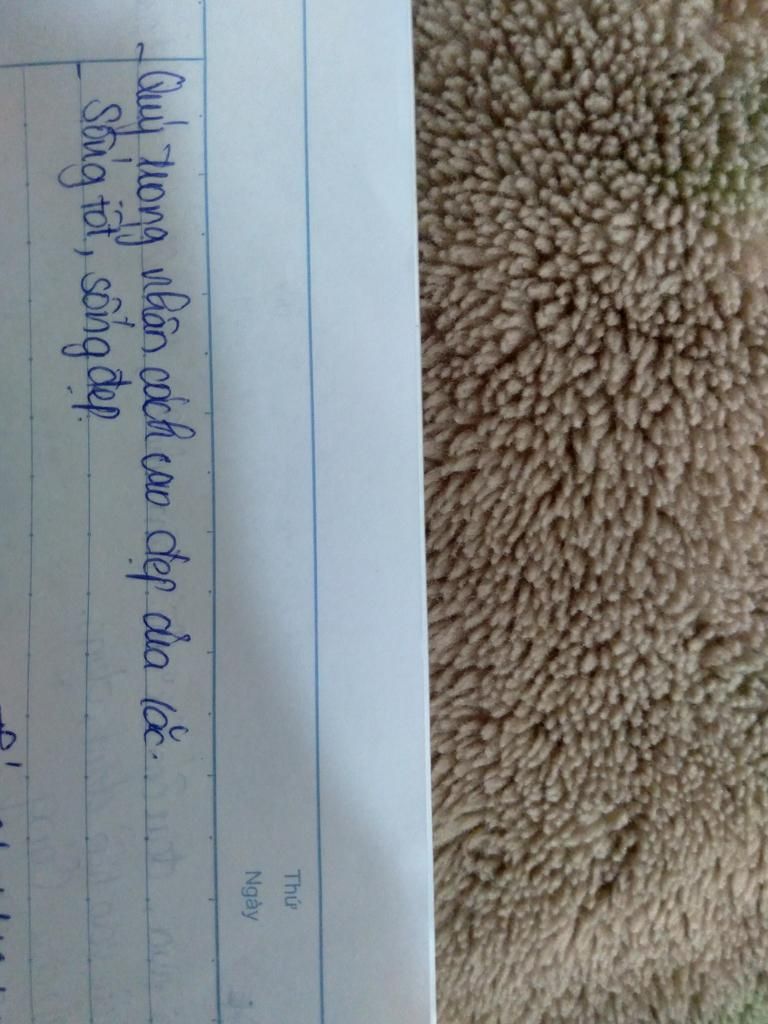 Thứ
Ngày
- Quý trọng nhân cách cao đẹp của lão.
Sống tốt, sống đẹp.